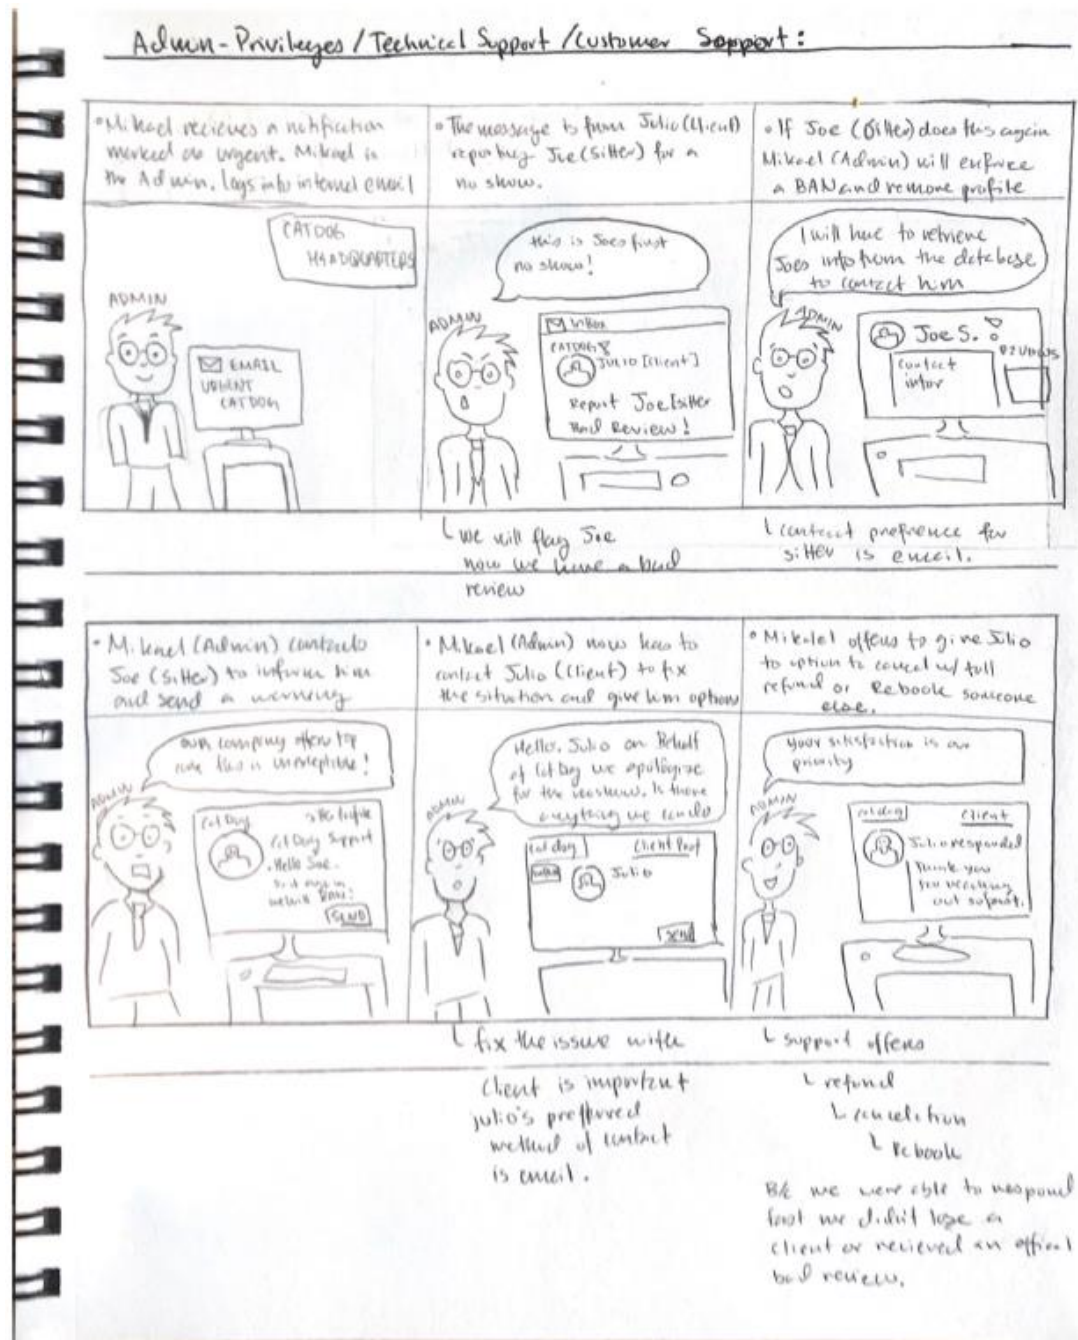 Admin-Privileges / Technical Support / Customer Support:
• Mikael recieves a notification
marked as urgent. Mikael is
the Admin. Logs into internal email
CATDOG
HEADQUARTERS
ADMIN
EMAIL
URGENT
CATDOG
• The message is from Julio (Client)
reporting Joe (Sitter) for a
no show.
this is Joes first
no show!
ADMIN
Inbox
CATDOG
Julio [Client]
Report Joe [sitter
Bad Review!
└ we will flag Joe
now we have a bad
review
• If Joe (Sitter) does this again
Mikael (Admin) will enforce
a BAN and remove profile
I will have to retrieve
Joes info from the database
to contact him
ADMIN
Joe S.
Contact
infor
└ contact prefrence for
sitter is email.
• Mikael (Admin) contacts
Joe (Sitter) to inform him
and send a warning
our company offers top
care this is unacceptible!
ADMIN
Cat Dog
Cat Dog Support
Hello Joe.
SEND
• Mikael (Admin) now has to
contact Julio (Client) to fix
the situation and give him option
Hello, Julio on Behalf
of Cat Dog we apologize
for the no show. Is there
anything we can do
ADMIN
Cat dog
Client Port
Julio
Send
└ fix the issue with
Client is important
julio's preffered
method of contact
is email.
• Mikael offers to give Julio
to option to cancel w/ full
refund or Rebook someone
else.
your satisfaction is our
priority
ADMIN
Cat dog
Client
Julio responded
Thank you
for reaching
out
└ support offers
└ refund
└ cancelation
└ Rebook
B/c we were able to respond
fast we didn't lose a
client or recieved an offical
bad review.